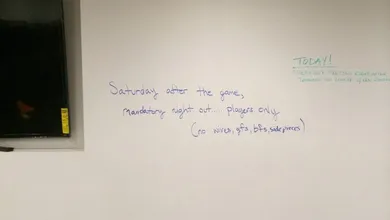 TODAY!
Saturday after the game,
mandatory night out... players only
(no wives, gfs, bfs, side pieces)